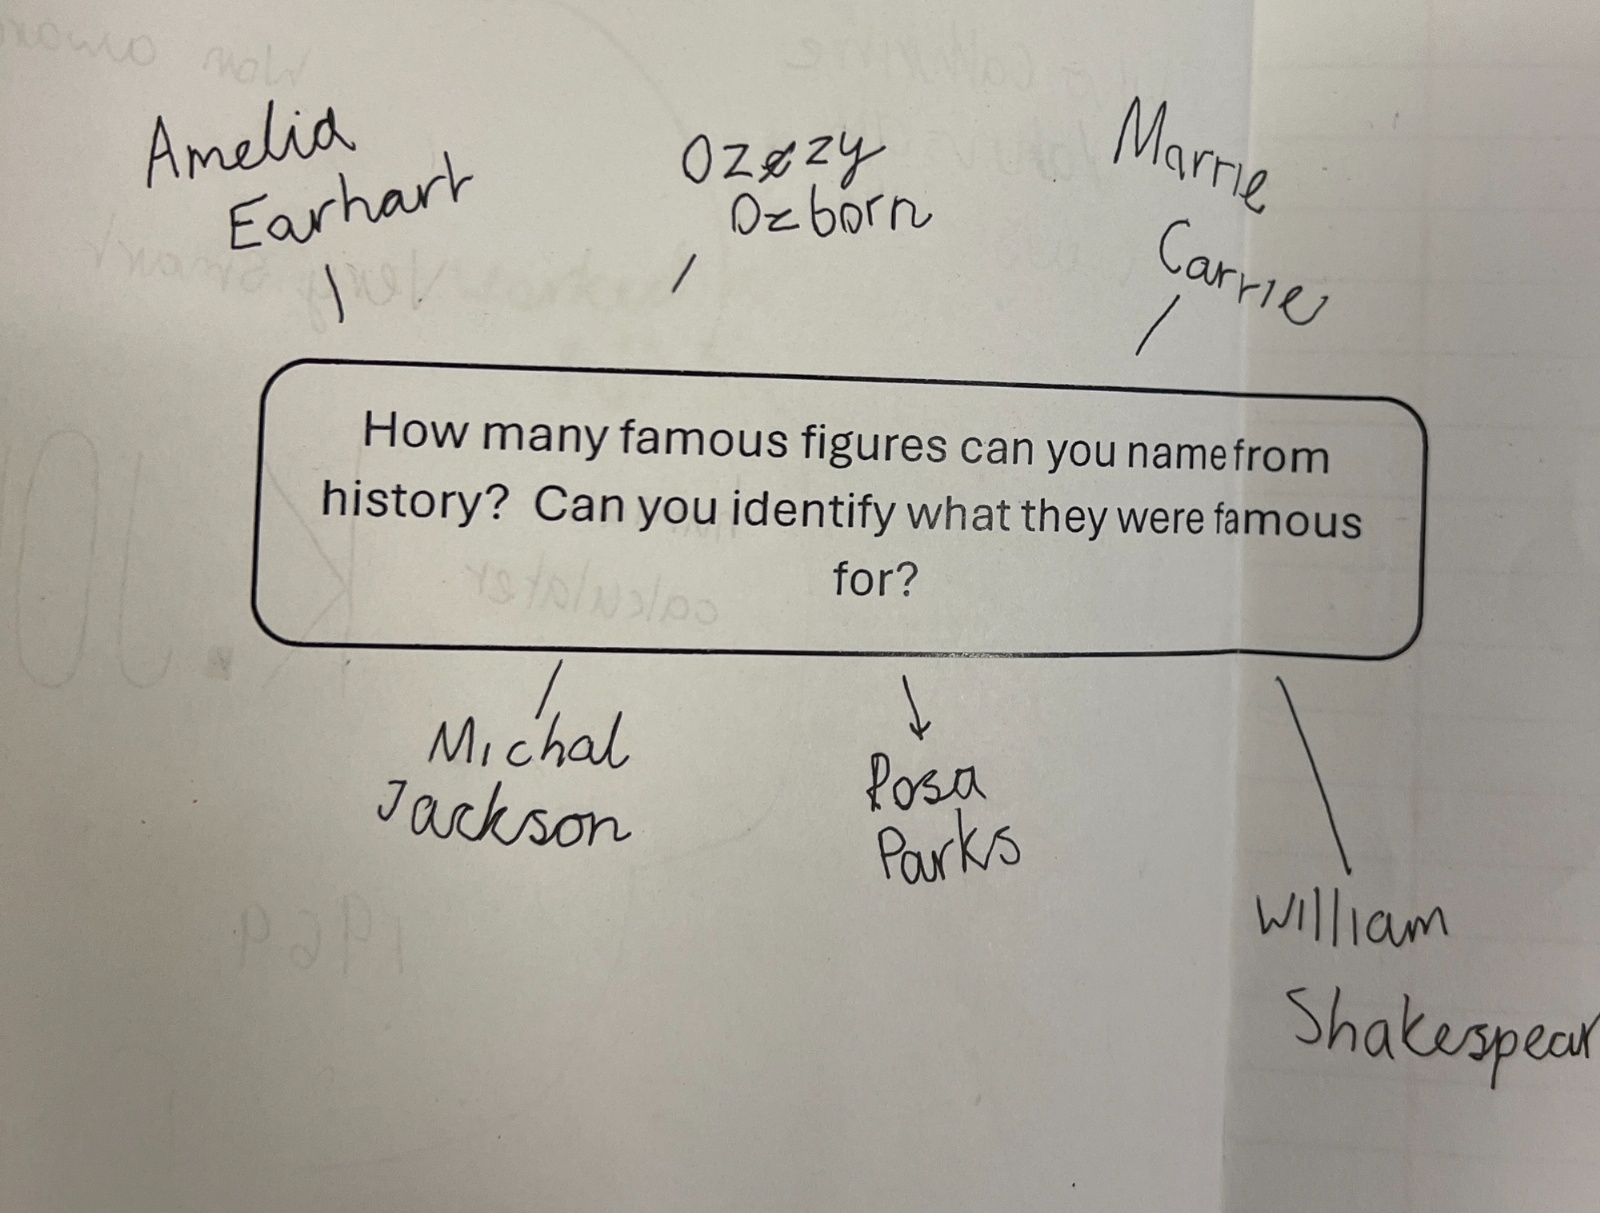 Amelia
Earhart
Ozzy
Ozborn
Marrie
Carrie
How many famous figures can you name from
history? Can you identify what they were famous
for?
Michal
Jackson
Rosa
Parks
William
Shakespear